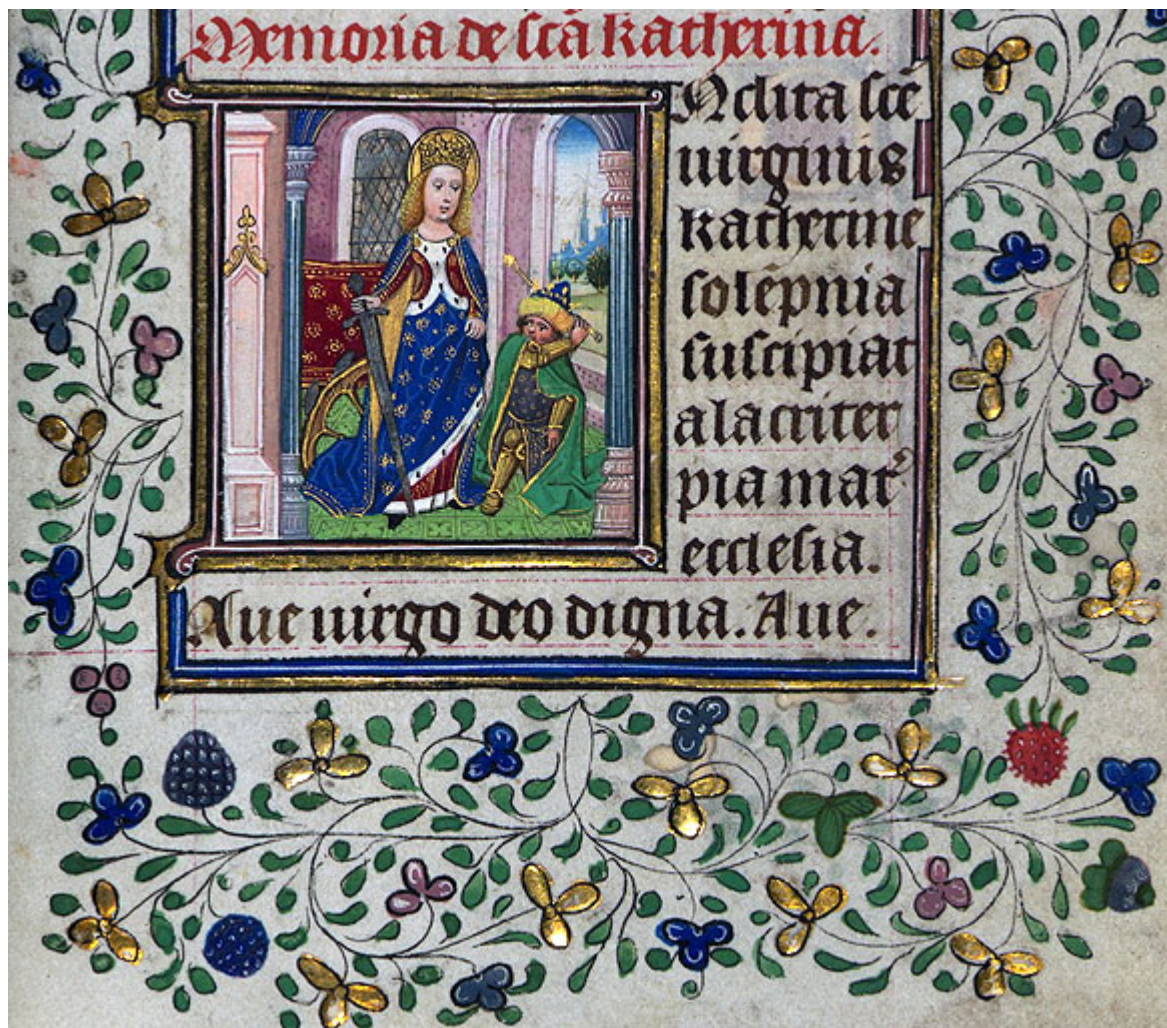 Memoria de scā katherina.
Nclita scē
uirginis
katherine
solēpnia
suscipiat
alacriter
pia mat᷑
ecclesia.
Aue uirgo deo digna. Aue.